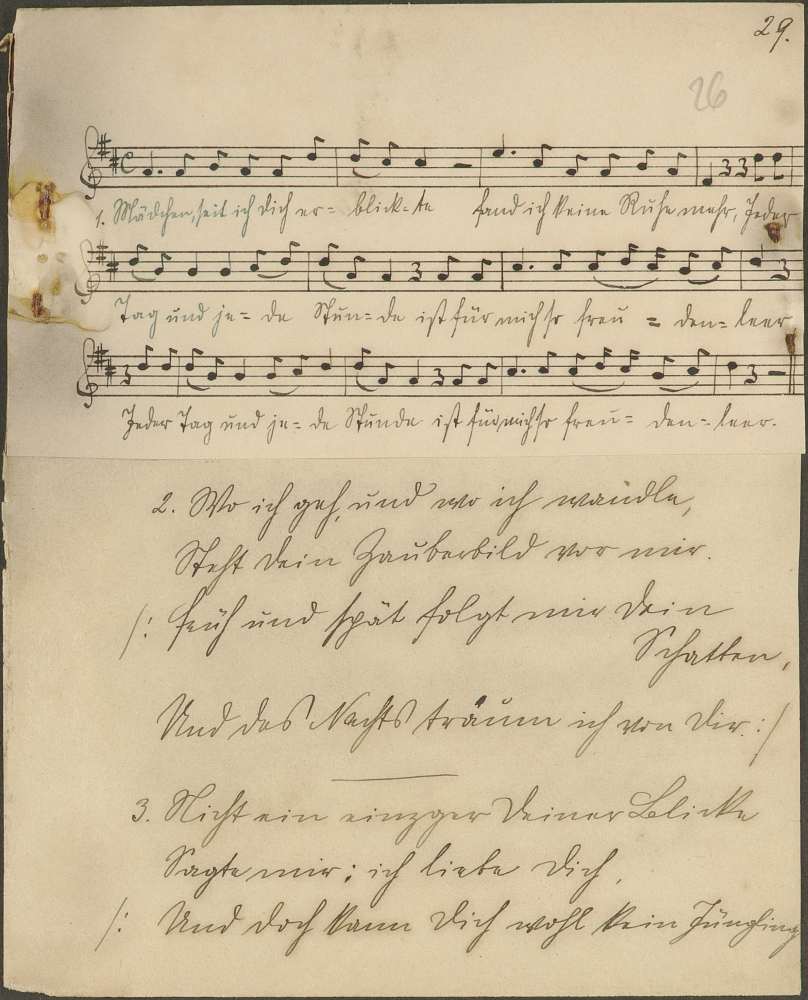 29.
26
1. Mädchen, seit ich dich er= blick=te fand ich keine Ruhe mehr, Jeder
Tag und je= de Stun=de ist für mich so freu = den= leer
Jeder Tag und je= de Stunde ist für mich so freu= den= leer.
2. Wo ich geh, und wo ich wandle,
Steht dein Zauberbild vor mir.
/: früh und spät folgt mir dein
Schatten,
Und des Nachts träum ich von dir. :/
3. Nicht ein einzger deiner Blicke
Sagte mir: ich liebe dich,
/: Und doch kann dich wohl kein Jüngling